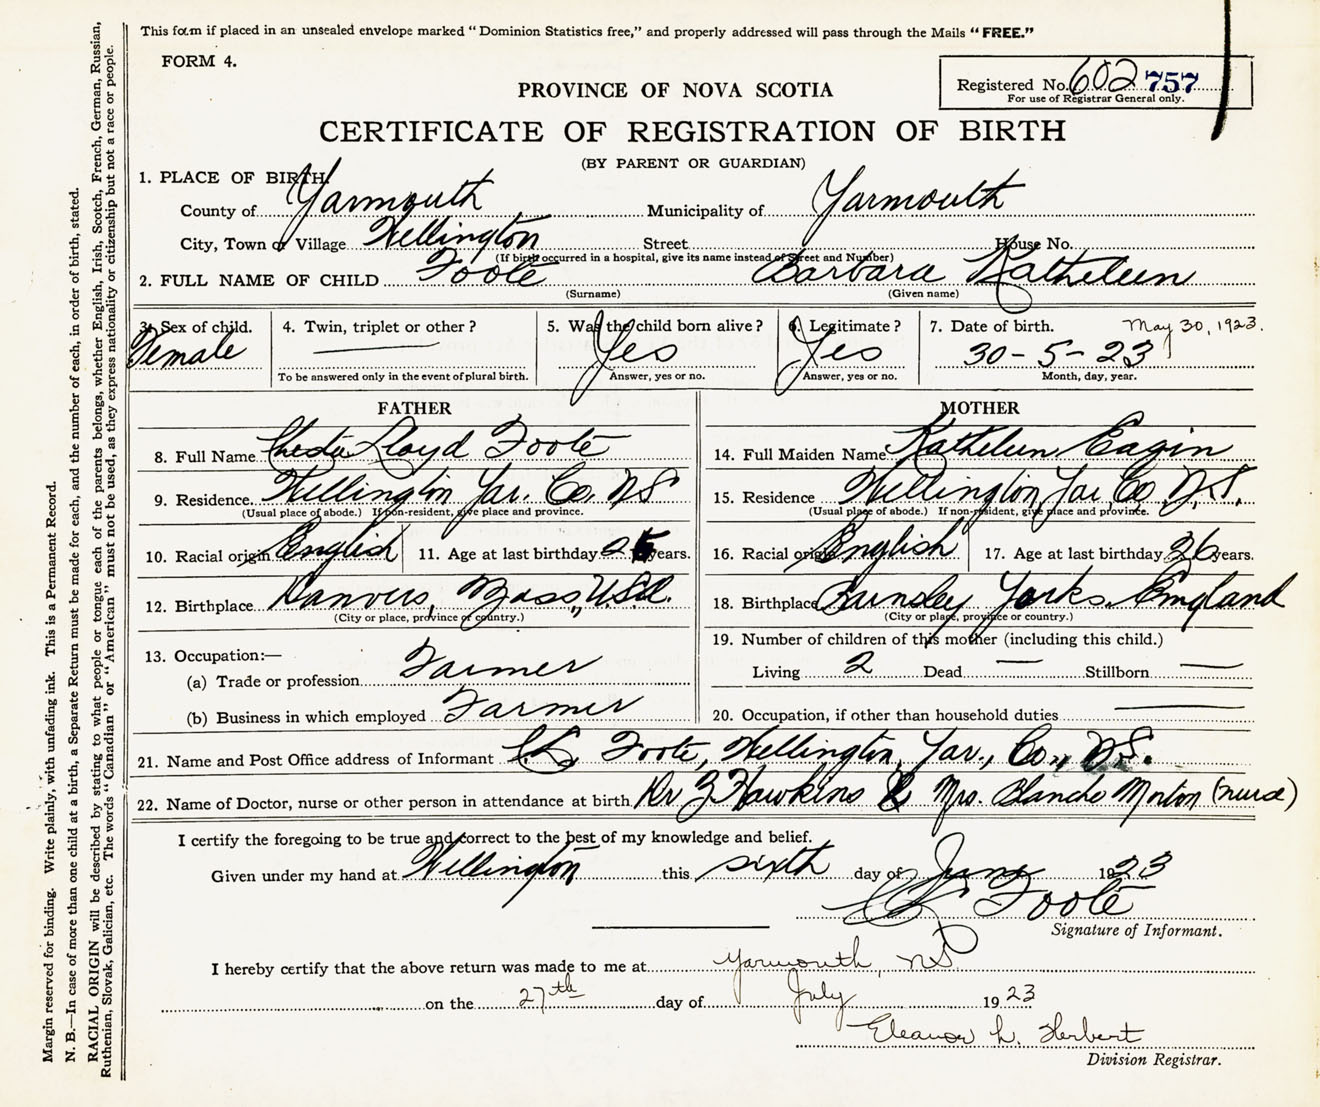 This form if placed in an unsealed envelope marked "Dominion Statistics free," and properly addressed will pass through the Mails "FREE."
FORM 4.
Registered No. 602 757
For use of Registrar General only.
PROVINCE OF NOVA SCOTIA
CERTIFICATE OF REGISTRATION OF BIRTH
(BY PARENT OR GUARDIAN)
1. PLACE OF BIRTH
County of Yarmouth Municipality of Yarmouth
City, Town or Village Wellington Street House No.
(If birth occurred in a hospital, give its name instead of Street and Number)
2. FULL NAME OF CHILD Foote Barbara Kathleen
(Surname) (Given name)
3. Sex of child. 4. Twin, triplet or other? 5. Was the child born alive? 6. Legitimate? 7. Date of birth. May 30, 1923.
Female — Yes Yes 30-5-23
To be answered only in the event of plural birth. Answer, yes or no. Answer, yes or no. Month, day, year.
FATHER
8. Full Name Chester Lloyd Foote
9. Residence. Wellington Yar. Co. NS
(Usual place of abode.) If non-resident, give place and province.
10. Racial origin English 11. Age at last birthday 25 years.
12. Birthplace Danvers, Mass., U.S.A.
(City or place, province or country.)
13. Occupation:—
(a) Trade or profession Farmer
(b) Business in which employed Farmer
MOTHER
14. Full Maiden Name Kathleen Eagin
15. Residence Wellington Yar Co N.S.
(Usual place of abode.) If non-resident, give place and province.
16. Racial origin English 17. Age at last birthday 26 years.
18. Birthplace Yorks. England
(City or place, province or country.)
19. Number of children of this mother (including this child.)
Living 2 Dead — Stillborn —
20. Occupation, if other than household duties —
21. Name and Post Office address of Informant C L Foote, Wellington, Yar., Co., N.S.
22. Name of Doctor, nurse or other person in attendance at birth Dr Hawkins & Mrs. Blanche Morton (nurse)
I certify the foregoing to be true and correct to the best of my knowledge and belief.
Given under my hand at Wellington this sixth day of June 1923
C L Foote
Signature of Informant.
I hereby certify that the above return was made to me at Yarmouth, NS
on the 27th day of July 1923
Eleanor L. Herbert
Division Registrar.
Margin reserved for binding. Write plainly, with unfading ink. This is a Permanent Record.
N. B.—In case of more than one child at a birth, a Separate Return must be made for each, and the number of each, in order of birth, stated.
RACIAL ORIGIN will be described by stating to what people or tongue each of the parents belongs, whether English, Irish, Scotch, French, German, Russian,
Ruthenian, Slovak, Galician, etc. The words "Canadian" or "American" must not be used, as they express nationality or citizenship but not a race or people.